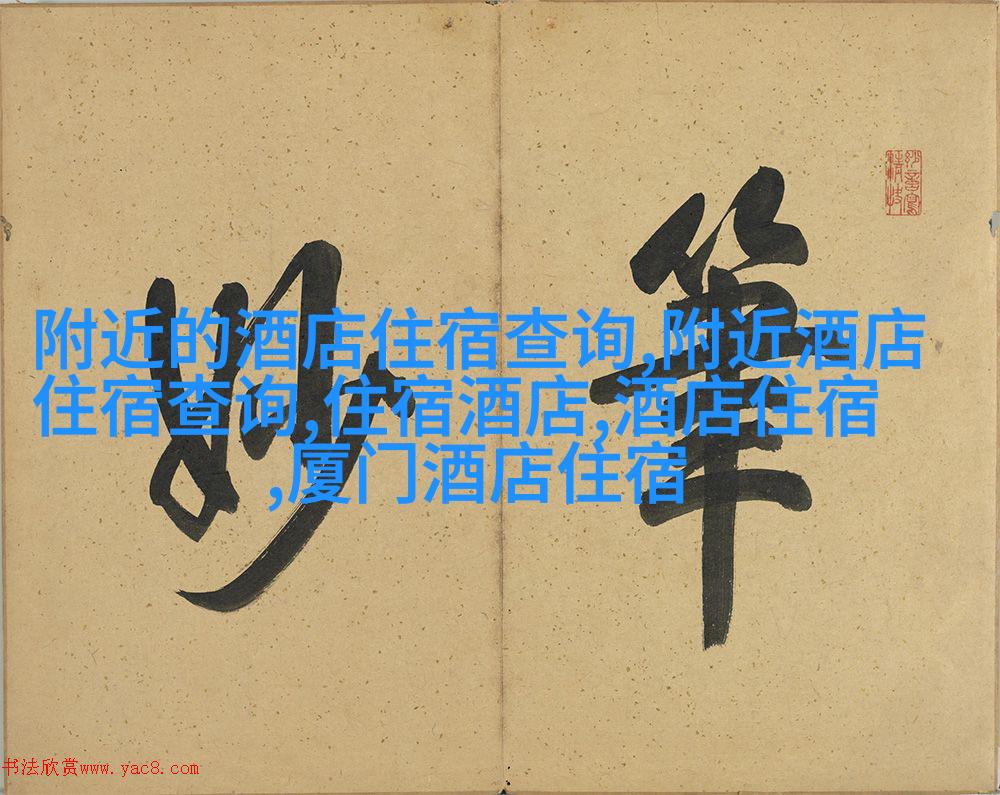 筆
妙
附近的酒店住宿查询,附近酒店
住宿查询,住宿酒店,酒店住宿
,厦门酒店住宿
书法欣赏www.yac8.com